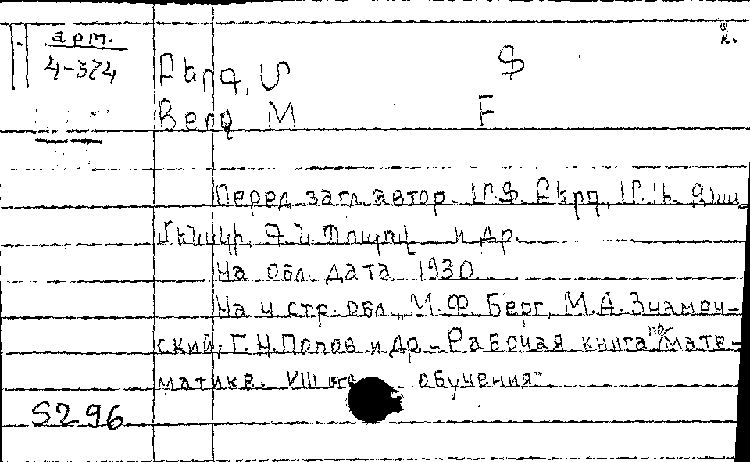 арт. 2.
4-324 Բերգ, Մ Ֆ
Berg M F
Перед загл. автор. Մ.Ֆ. Բերգ, Մ.Ա. Զնա
մենսկի, Գ.Ն. Պոպով и др.
На обл. дата 1930
На 4 стр. обл. „М.Ф. Берг, М.А. Знамен-
ский, Г.Н. Попов и др. – Рабочая книга по мате-
матике. VIII обучения"
5296